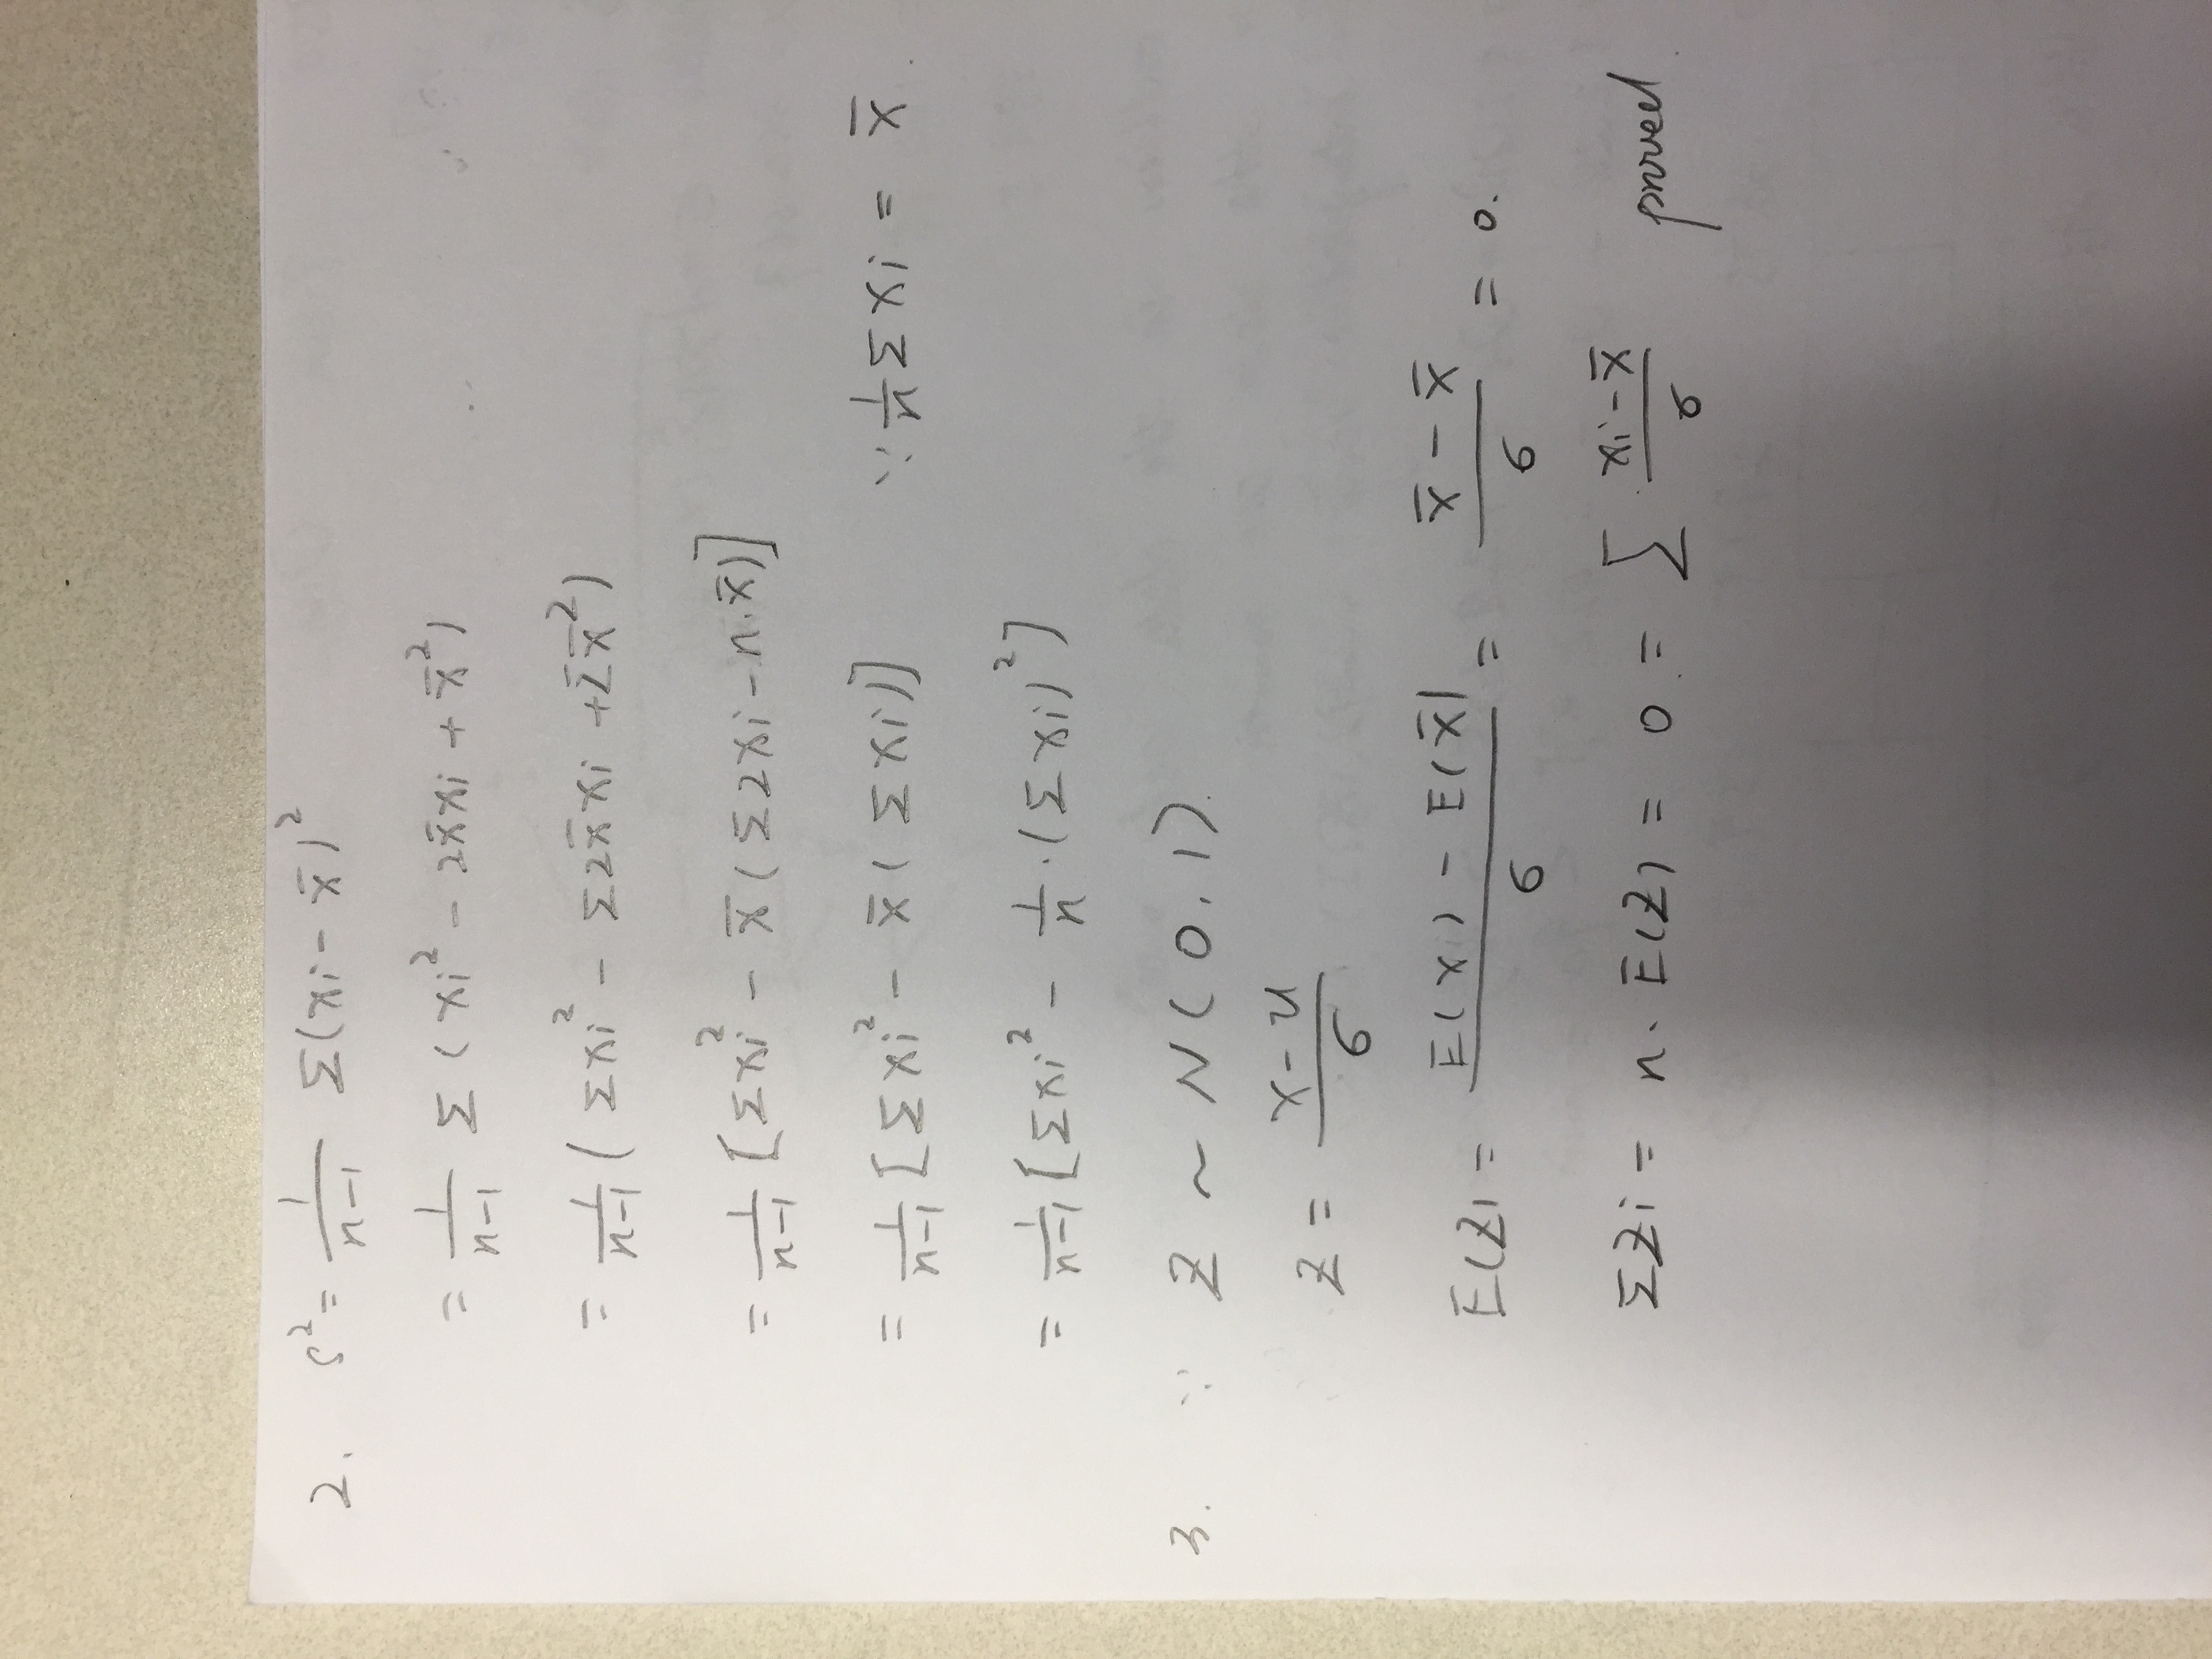 2. S² = 1/(n-1) Σ(xi - x̄)²
= 1/(n-1) Σ(xi² - 2x̄xi + x̄²)
= 1/(n-1) (Σxi² - Σ2x̄xi + Σx̄²)
= 1/(n-1) [Σxi² - x̄(Σ2xi - n·x̄)]
= 1/(n-1) [Σxi² - x̄(Σxi)] ∵ 1/n Σxi = x̄.
= 1/(n-1) [Σxi² - 1/n·(Σxi)²]
3. ∵ Z ~ N(0,1).
Z = (x-u)/6
E(Z) = (E(x) - E(x̄))/6 = (x̄ - x̄)/6 = 0.
ΣZi = n·E(Z) = 0 = Σ (xi - x̄)/6 proved.